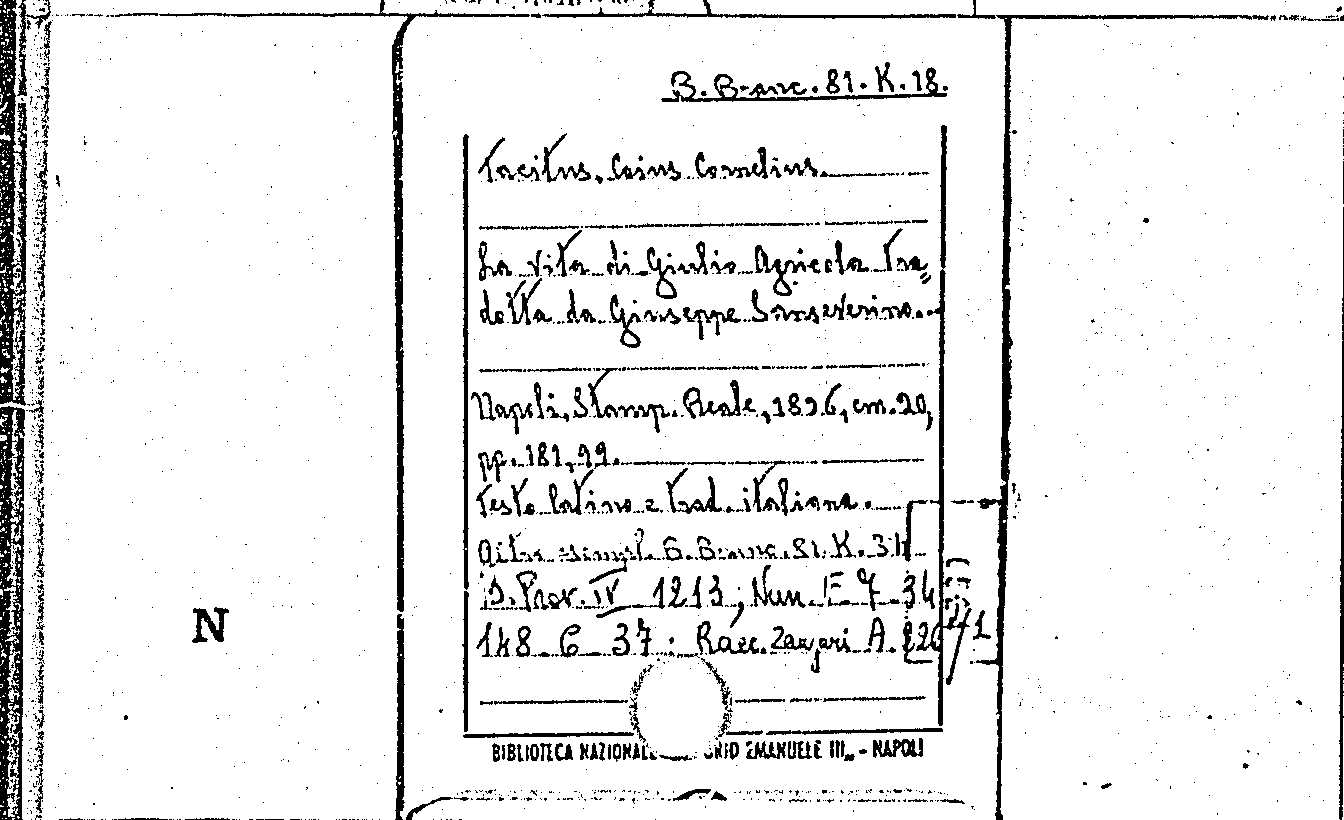 B. Branc. 81. K. 18.
Tacitus, Caius Cornelius.
La vita di Giulio Agricola tra=
dotta da Giuseppe Sanseverino.
Napoli, Stamp. Reale, 1826, cm. 20,
pp. 181, 99.
Testo latino e trad. italiana.
Altro esempl. B. Branc. 81. K. 31
S. Prov. IV 1213; Nun. E 7 34
148 C 37; Racc. Zangari A. 226/1
N
BIBLIOTECA NAZIONALE EMANUELE III„ - NAPOLI